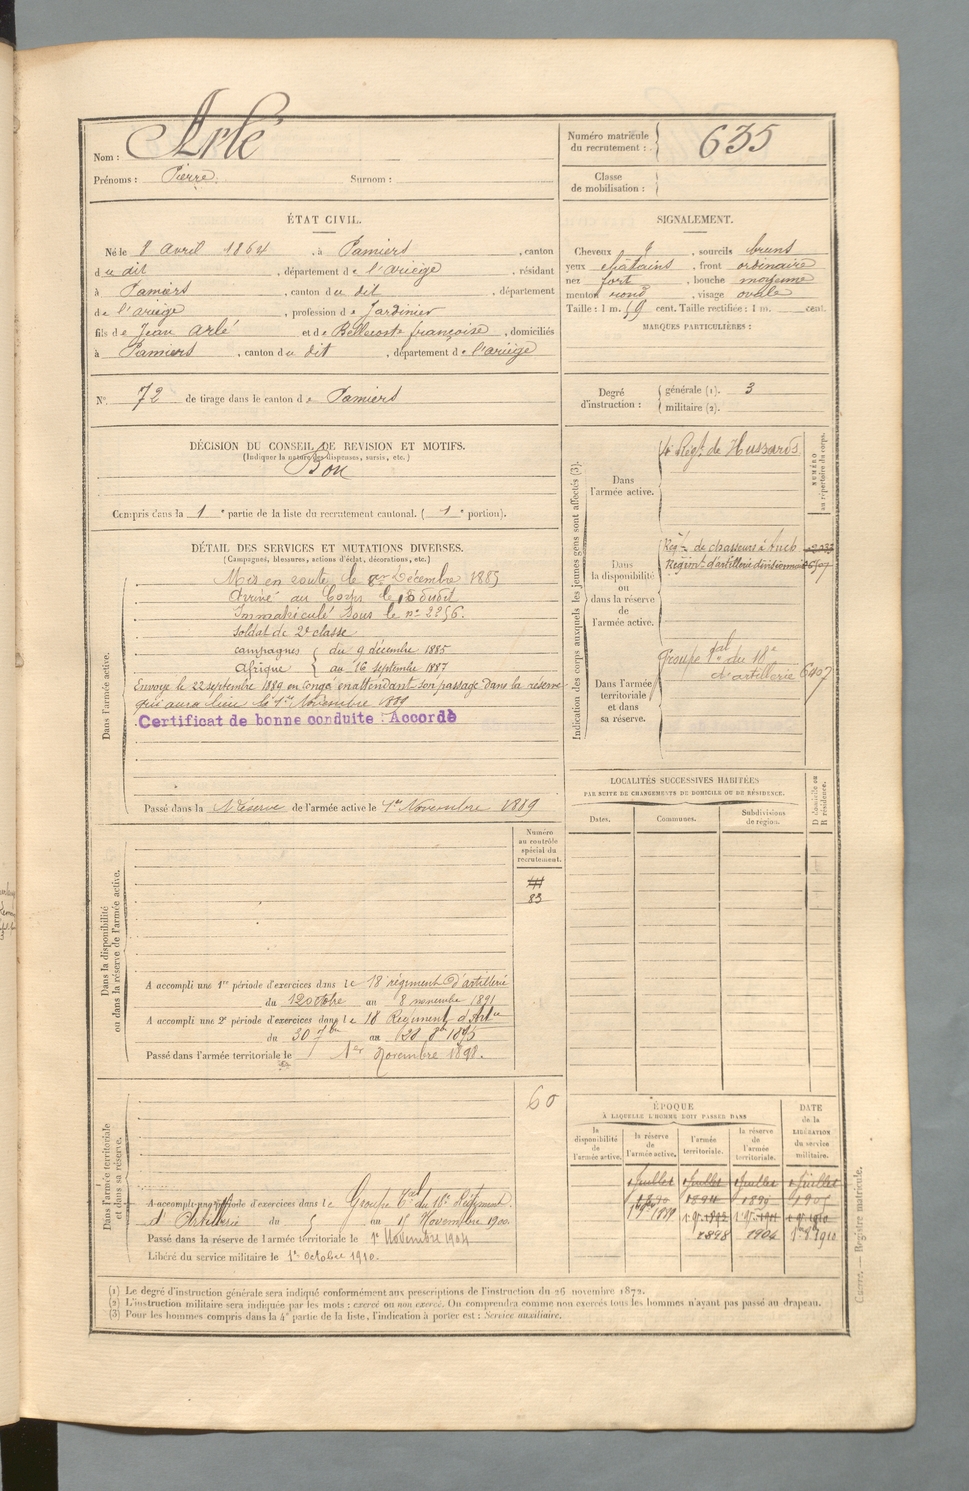 Nom : Arlé
Prénoms : Pierre. Surnom :
Numéro matricule du recrutement : 635
Classe de mobilisation :
ÉTAT CIVIL.
Né le 8 Avril 1864, à Pamiers, canton
du dit, département de l'ariège, résidant
à Pamiers, canton du dit, département
de l'ariège, profession de Jardinier
fils de Jean Arlé et de Françoise, domiciliés
à Pamiers, canton du dit, département de l'ariège
SIGNALEMENT.
Cheveux, sourcils bruns
yeux châtains, front ordinaire
nez fort, bouche moyenne
menton rond, visage ovale
Taille : 1 m. 59 cent. Taille rectifiée : 1 m. cent.
MARQUES PARTICULIÈRES :
N° 72 de tirage dans le canton de Pamiers
Degré d'instruction : générale (1). 3
militaire (2).
DÉCISION DU CONSEIL DE REVISION ET MOTIFS.
(Indiquer la nature des dispenses, sursis, etc.)
Bon
Compris dans la 1e partie de la liste du recrutement cantonal. (1e portion).
DÉTAIL DES SERVICES ET MUTATIONS DIVERSES.
(Campagnes, blessures, actions d'éclat, décorations, etc.)
Dans l'armée active.
Mis en route le Décembre 1885
Arrivé au Corps le dudit
Immatriculé sous le n° 2256.
soldat de 2e classe
campagnes du 9 décembre 1885
afrique au 16 septembre 1887
Envoyé le 22 septembre 1889 en congé en attendant son passage dans la réserve
qui aura lieu le 1er Novembre 1889
Certificat de bonne conduite : Accordé
Passé dans la Réserve de l'armée active le 1er Novembre 1889
Indication des corps auxquels les jeunes gens sont affectés (3).
NUMÉRO au répertoire du corps.
Dans l'armée active.
4e Régt de Hussards
Dans la disponibilité ou dans la réserve de l'armée active.
Régt de chasseurs à Auch
Régimt d'artillerie divisionnaire
Dans l'armée territoriale et dans sa réserve.
Groupe tal du 18e
d'artillerie 6407
LOCALITÉS SUCCESSIVES HABITÉES
PAR SUITE DE CHANGEMENTS DE DOMICILE OU DE RÉSIDENCE.
Dates. Communes. Subdivisions de région.
D domicile ou R résidence.
Dans la disponibilité ou dans la réserve de l'armée active.
Numéro au contrôle spécial du recrutement.
83
A accompli une 1re période d'exercices dans le 18 régiment d'artillerie
du 12 octbre au 8 novembre 1891
A accompli une 2e période d'exercices dans le 18 Régiment d'Artie
du 30 7bre au
Passé dans l'armée territoriale le 1er Novembre 1898.
60
Dans l'armée territoriale et dans sa réserve.
A accompli une période d'exercices dans le Groupe tal du 18e Régiment
d'Artillerie du 5 au 15 Novembre 1900.
Passé dans la réserve de l'armée territoriale le 1er Novembre 1904
Libéré du service militaire le 1er Octobre 1910.
ÉPOQUE
À LAQUELLE L'HOMME DOIT PASSER DANS
DATE de la LIBÉRATION du service militaire.
la disponibilité de l'armée active.
la réserve de l'armée active.
l'armée territoriale.
la réserve de l'armée territoriale.
1898 1904
(1) Le degré d'instruction générale sera indiqué conformément aux prescriptions de l'instruction du 26 novembre 1872.
(2) L'instruction militaire sera indiquée par les mots : exercé ou non exercé. On comprendra comme non exercés tous les hommes n'ayant pas passé au drapeau.
(3) Pour les hommes compris dans la 4e partie de la liste, l'indication à porter est : Service auxiliaire.
Registre matricule.